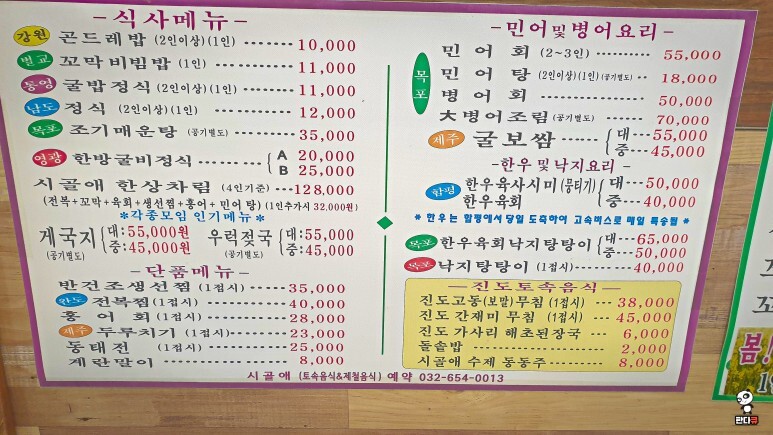 -식사메뉴-
강원 곤드레밥 (2인이상)(1인) ······· 10,000
벌교 꼬막비빔밥 (1인) ··········· 11,000
통영 굴밥정식 (2인이상)(1인) ······· 11,000
남도 정식 (2인이상)(1인) ········· 12,000
목포 조기매운탕 (공기별도) ······· 35,000
영광 한방굴비정식 ········· A 20,000
B 25,000
시골애 한상차림 (4인기준) ···128,000
(전복+꼬막+육회+생선찜+홍어+민어탕) (1인추가시 32,000원)
*각종모임 인기메뉴*
게국지 (공기별도) 대:55,000원
중:45,000원
우럭젖국 (공기별도) 대:55,000
중:45,000
-단품메뉴-
반건조생선찜 (1접시) ······ 35,000
완도 전복찜 (1접시) ········ 40,000
홍어회 (1접시) ········ 28,000
제주 두루치기 (1접시) ······· 23,000
동태전 (1접시) ········ 25,000
계란말이 ············ 8,000
-민어및병어요리-
목포
민어회 (2~3인) ······· 55,000
민어탕 (2인이상)(1인)(공기별도) ·· 18,000
병어회 ··········· 50,000
大병어조림 (공기별도) ······ 70,000
제주 굴보쌈 ······ 대···55,000
중···45,000
-한우 및 낙지요리-
함평
한우육사시미 (뭉티기) 대···50,000
한우육회 중···40,000
* 한우는 함평에서 당일 도축하여 고속버스로 매일 특송됨 *
목포 한우육회낙지탕탕이 대···65,000
중···50,000
목포 낙지탕탕이 (1접시) ······· 40,000
-진도토속음식-
진도고동(보말)무침 (1접시) ··· 38,000
진도 간재미 무침 (1접시) ··· 45,000
진도 가사리 해초된장국 ··· 6,000
돌솥밥 ··············· 2,000
시골애 수제 동동주 ········ 8,000
시골애 (토속음식&제철음식) 예약 032-654-0013
봄!
판다큐